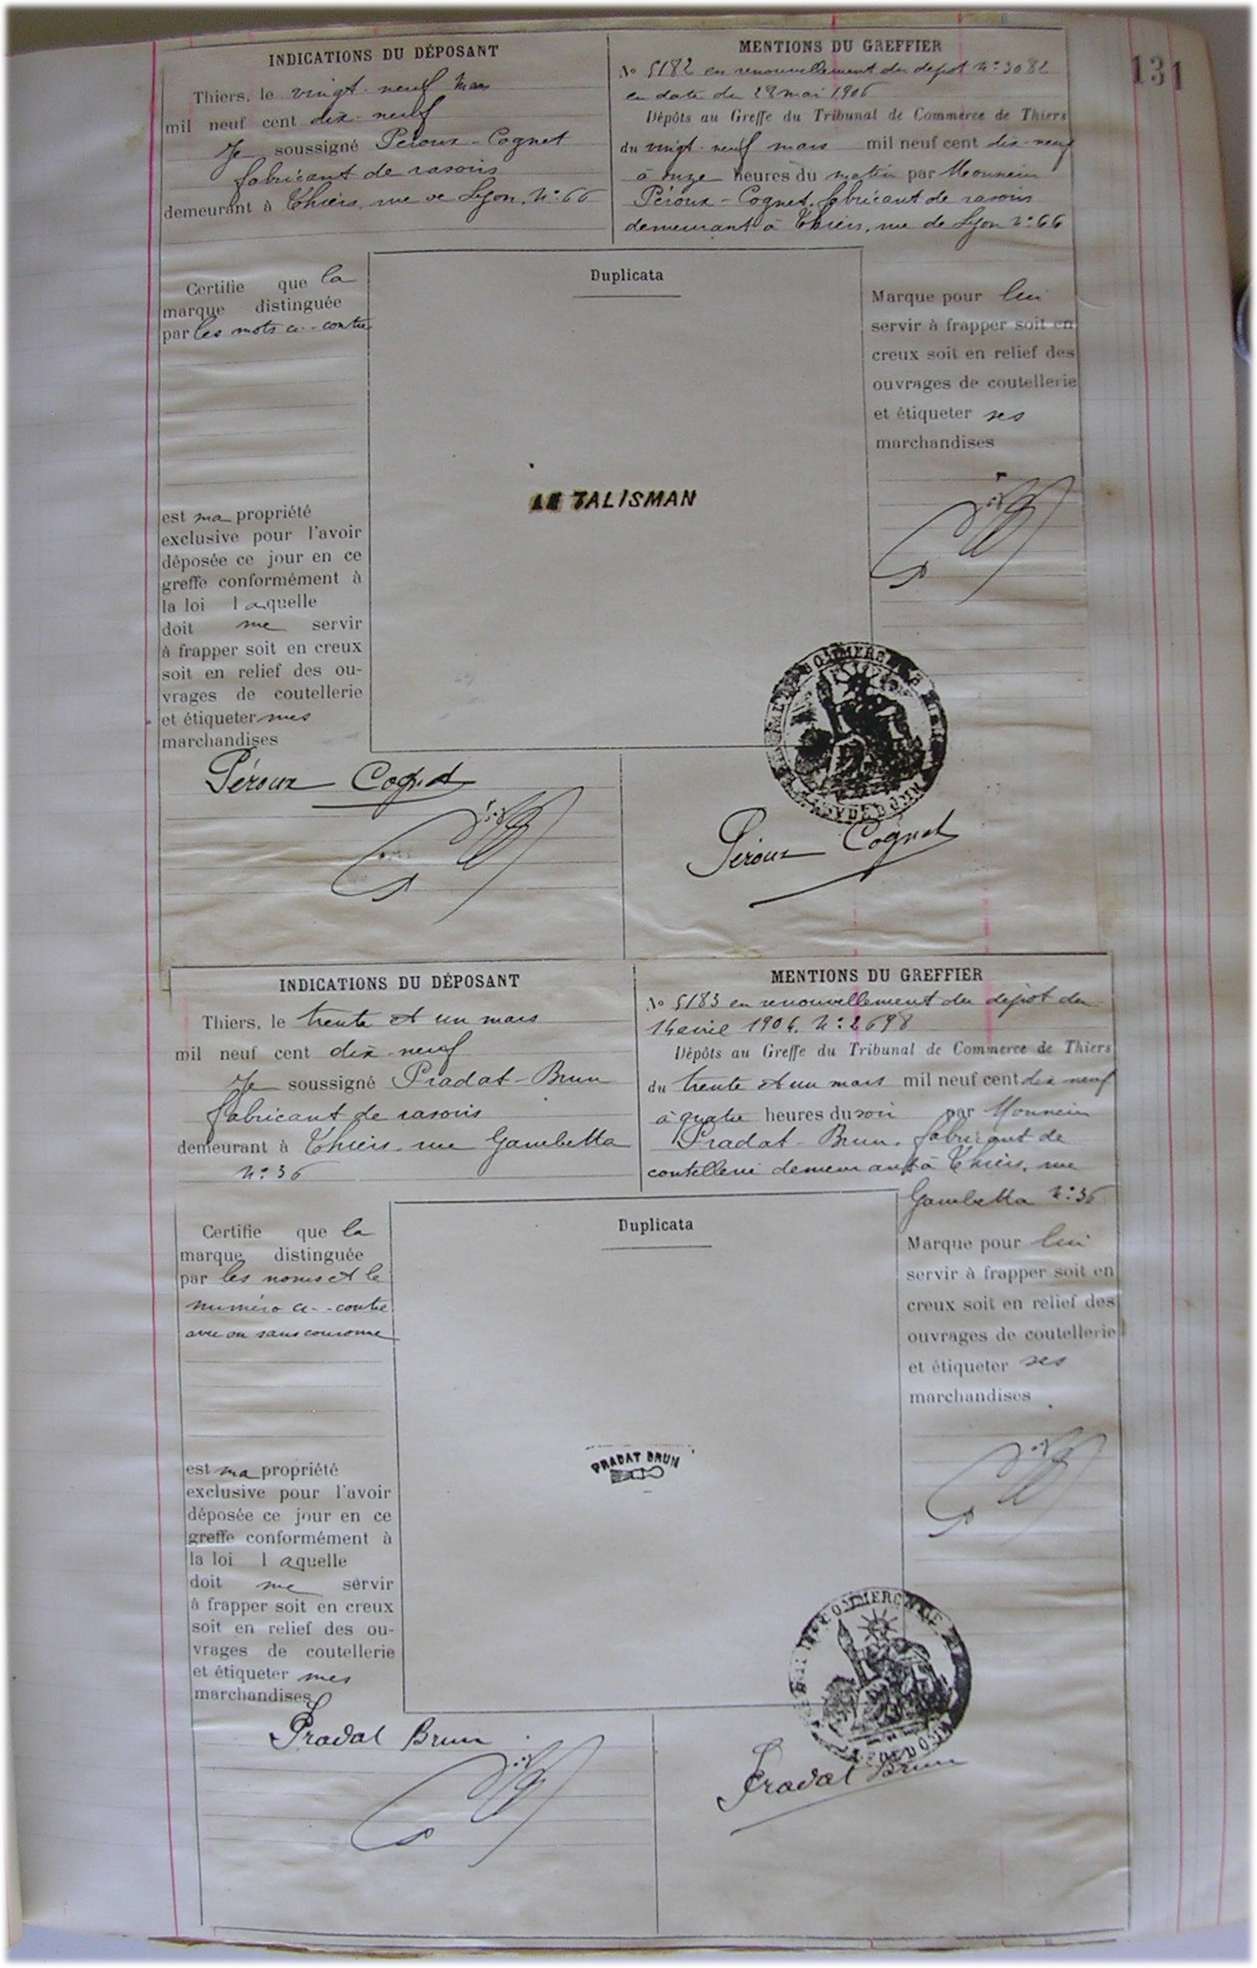 131
INDICATIONS DU DÉPOSANT
Thiers, le vingt-neuf mars
mil neuf cent dix-neuf
Je soussigné Péroux-Cognet
fabricant de rasoirs
demeurant à Thiers, rue de Lyon, N° 66
MENTIONS DU GREFFIER
No 5182 en renouvellement du dépot N° 3082
en date du 28 mai 1906
Dépôts au Greffe du Tribunal de Commerce de Thiers
du vingt-neuf mars mil neuf cent dix-neuf
à onze heures du matin par Monsieur
Péroux-Cognet, fabricant de rasoirs
demeurant à Thiers, rue de Lyon N° 66
Certifie que la
marque distinguée
par les mots ci-contre
est ma propriété
exclusive pour l'avoir
déposée ce jour en ce
greffe conformément à
la loi laquelle
doit me servir
à frapper soit en creux
soit en relief des ou-
vrages de coutellerie
et étiqueter mes
marchandises
Duplicata
LE TALISMAN
Marque pour lui
servir à frapper soit en
creux soit en relief des
ouvrages de coutellerie
et étiqueter ses
marchandises
Péroux Cognet
Péroux Cognet
INDICATIONS DU DÉPOSANT
Thiers, le trente et un mars
mil neuf cent dix-neuf
Je soussigné Pradat-Brun
fabricant de rasoirs
demeurant à Thiers, rue Gambetta
N° 36
MENTIONS DU GREFFIER
No 5183 en renouvellement du dépot du
14 avril 1904. N° 2698
Dépôts au Greffe du Tribunal de Commerce de Thiers
du trente et un mars mil neuf cent dix neuf
à quatre heures du soir par Monsieur
Pradat-Brun, fabricant de
coutellerie demeurant à Thiers, rue
Gambetta N° 36
Certifie que la
marque distinguée
par les noms et le
numéro ci-contre
avec ou sans couronne
est ma propriété
exclusive pour l'avoir
déposée ce jour en ce
greffe conformément à
la loi laquelle
doit me servir
à frapper soit en creux
soit en relief des ou-
vrages de coutellerie
et étiqueter mes
marchandises
Duplicata
PRADAT BRUN
Marque pour lui
servir à frapper soit en
creux soit en relief des
ouvrages de coutellerie
et étiqueter ses
marchandises
Pradat Brun
Pradat Brun